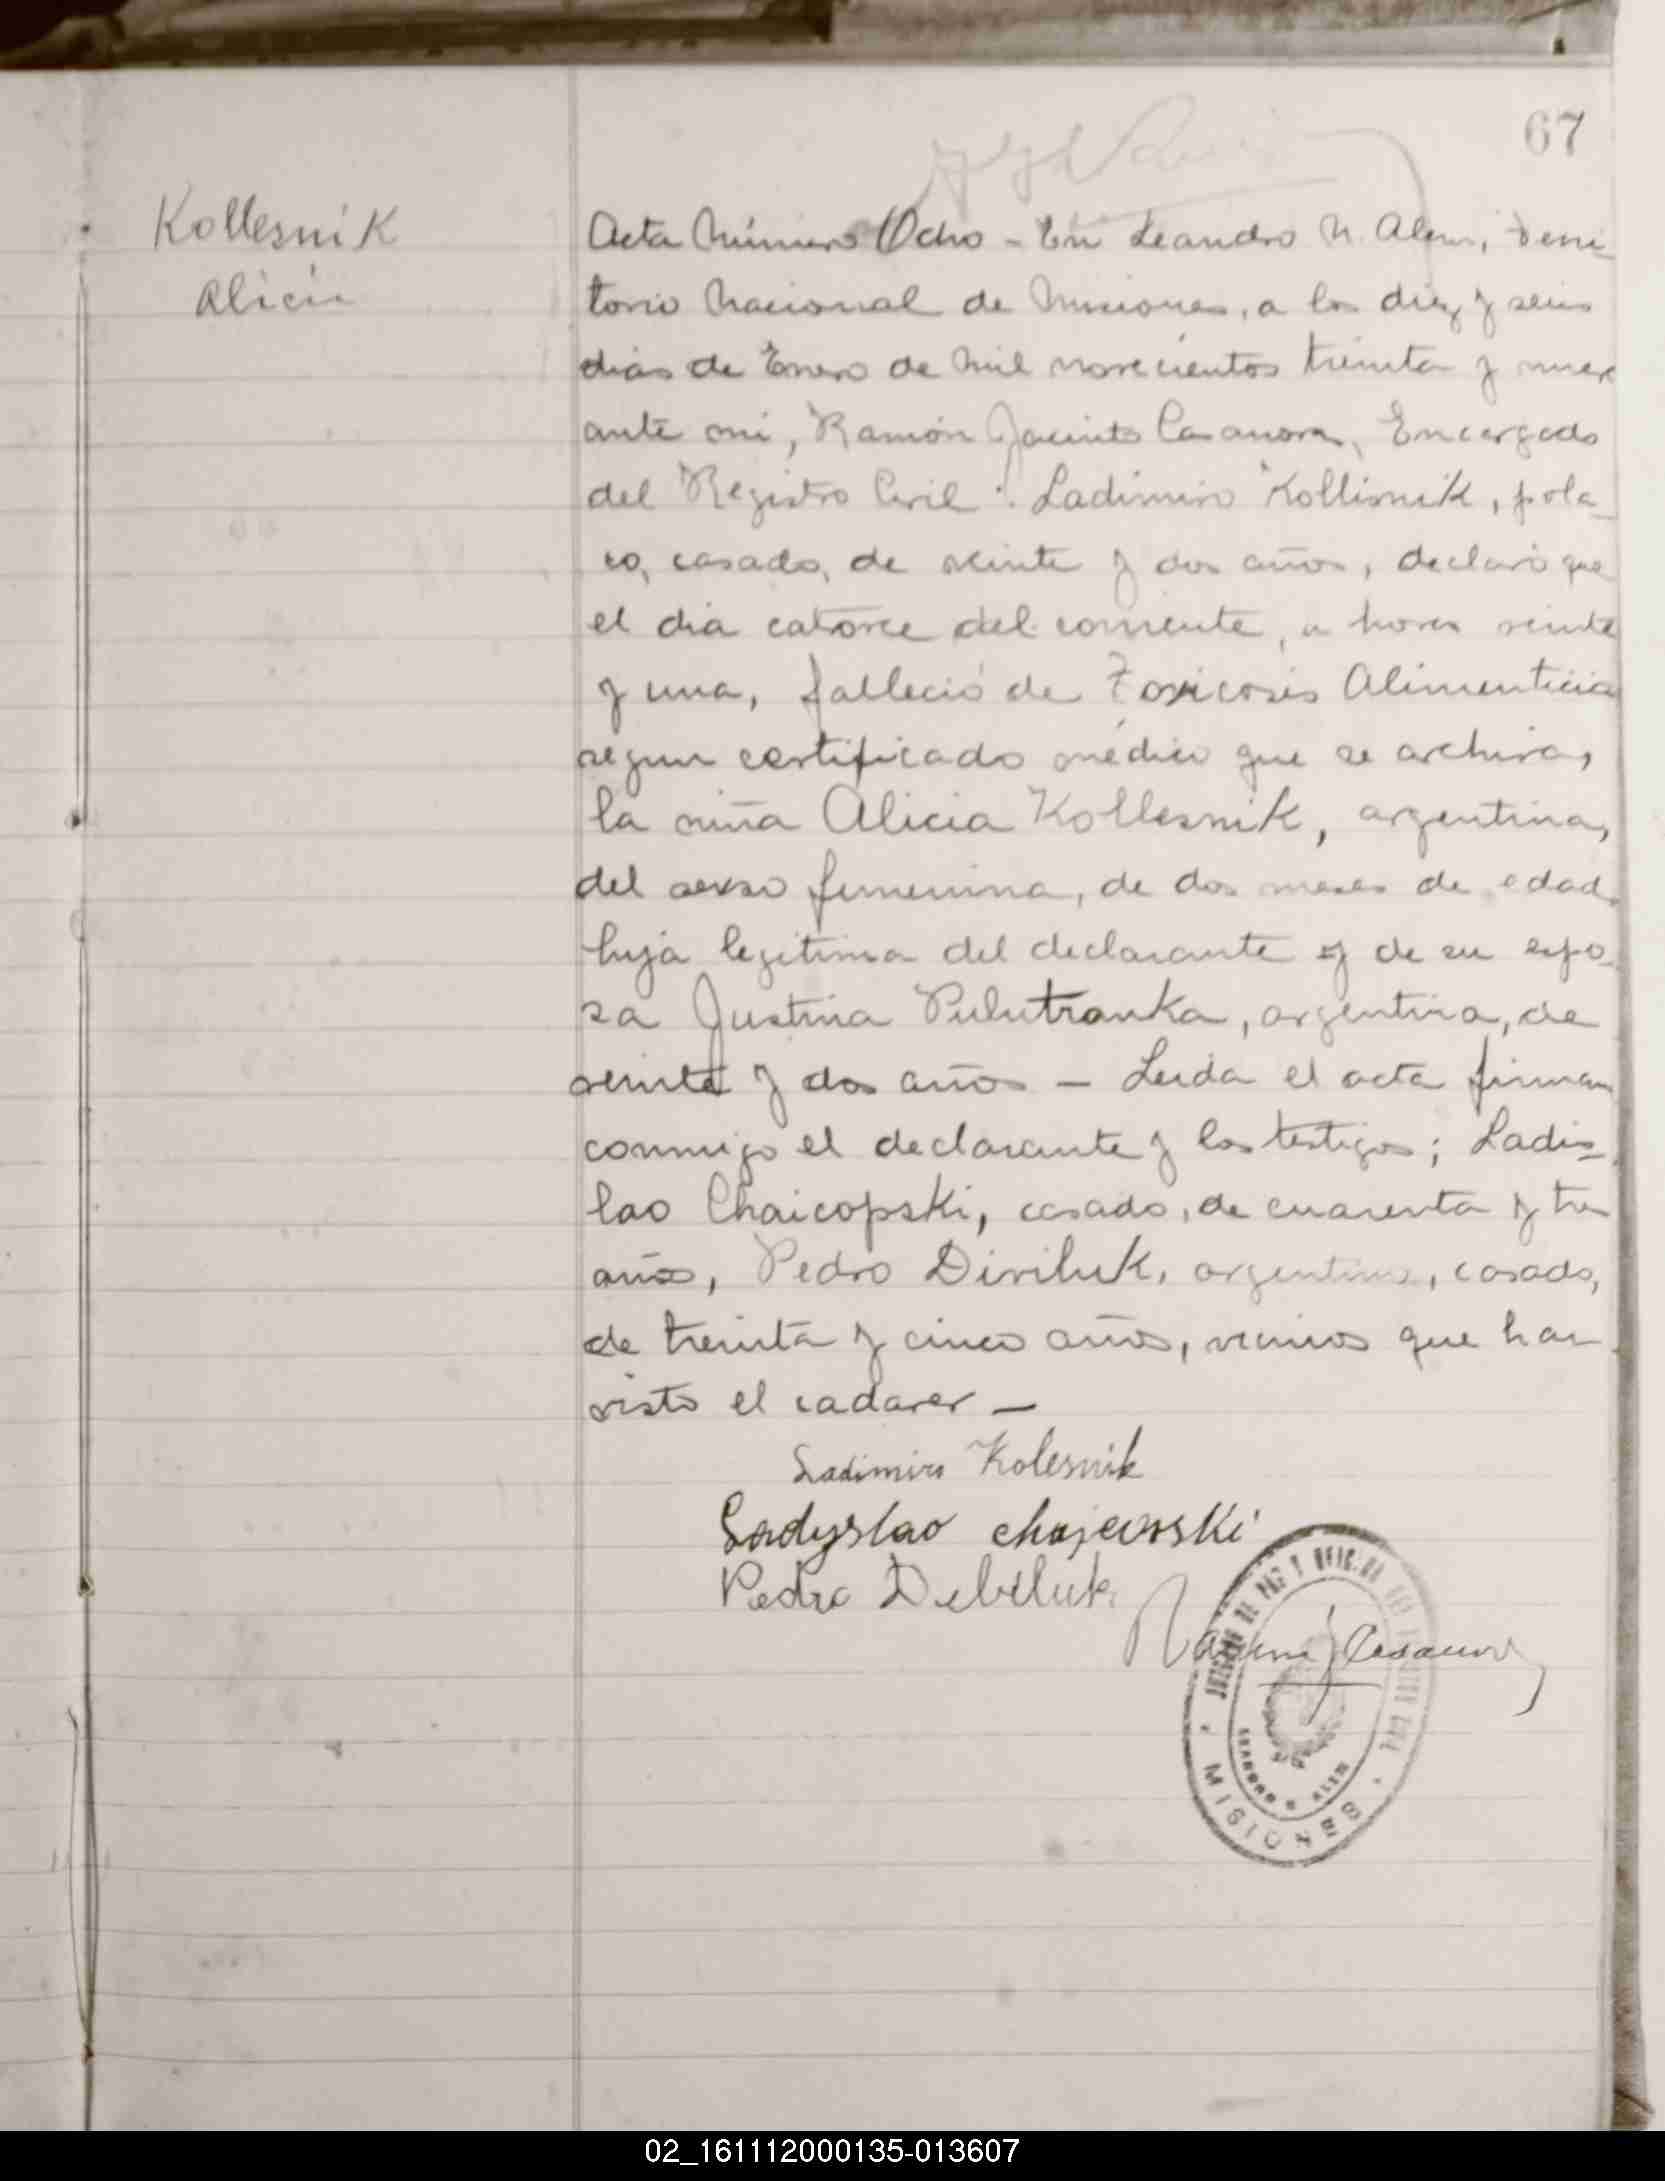 67
Kollesnik
Alicia
Acta Número Ocho - En Leandro N. Alem, Terri-
torio Nacional de Misiones, a los diez y seis
dias de Enero de mil novecientos treinta y nueve
ante mi, Ramón Jacinto Casanova, Encargado
del Registro Civil: Ladimiro Kollisnik, pola-
co, casado, de veinte y dos años, declaró que
el dia catorce del corriente, a horas veinte
y una, falleció de Toxicosis Alimenticia
segun certificado médico que se archiva,
la niña Alicia Kollesnik, argentina,
del sexso femenina, de dos meses de edad,
hija legitima del declarante y de su espo-
sa Justina Pulutranka, argentina, de
veinte y dos años - Leida el acta firman
conmigo el declarante y los testigos; Ladis-
lao Chaicopski, casado, de cuarenta y tres
años, Pedro Diviluk, argentino, casado,
de treinta y cinco años, vecinos que han
visto el cadaver -
Ladimiro Kolesnik
Ladyslao chajcovski
Pedro Debiluk
Ramón J Casanova
JUZGADO DE PAZ Y OFICINA DEL REGISTRO CIVIL
LEANDRO N. ALEM
MISIONES
02_161112000135-013607